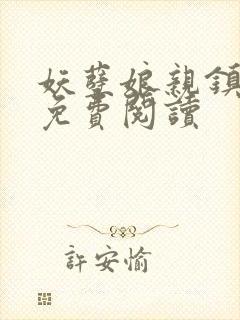 妖孽娘親鎮
免費閱讀
許安愉